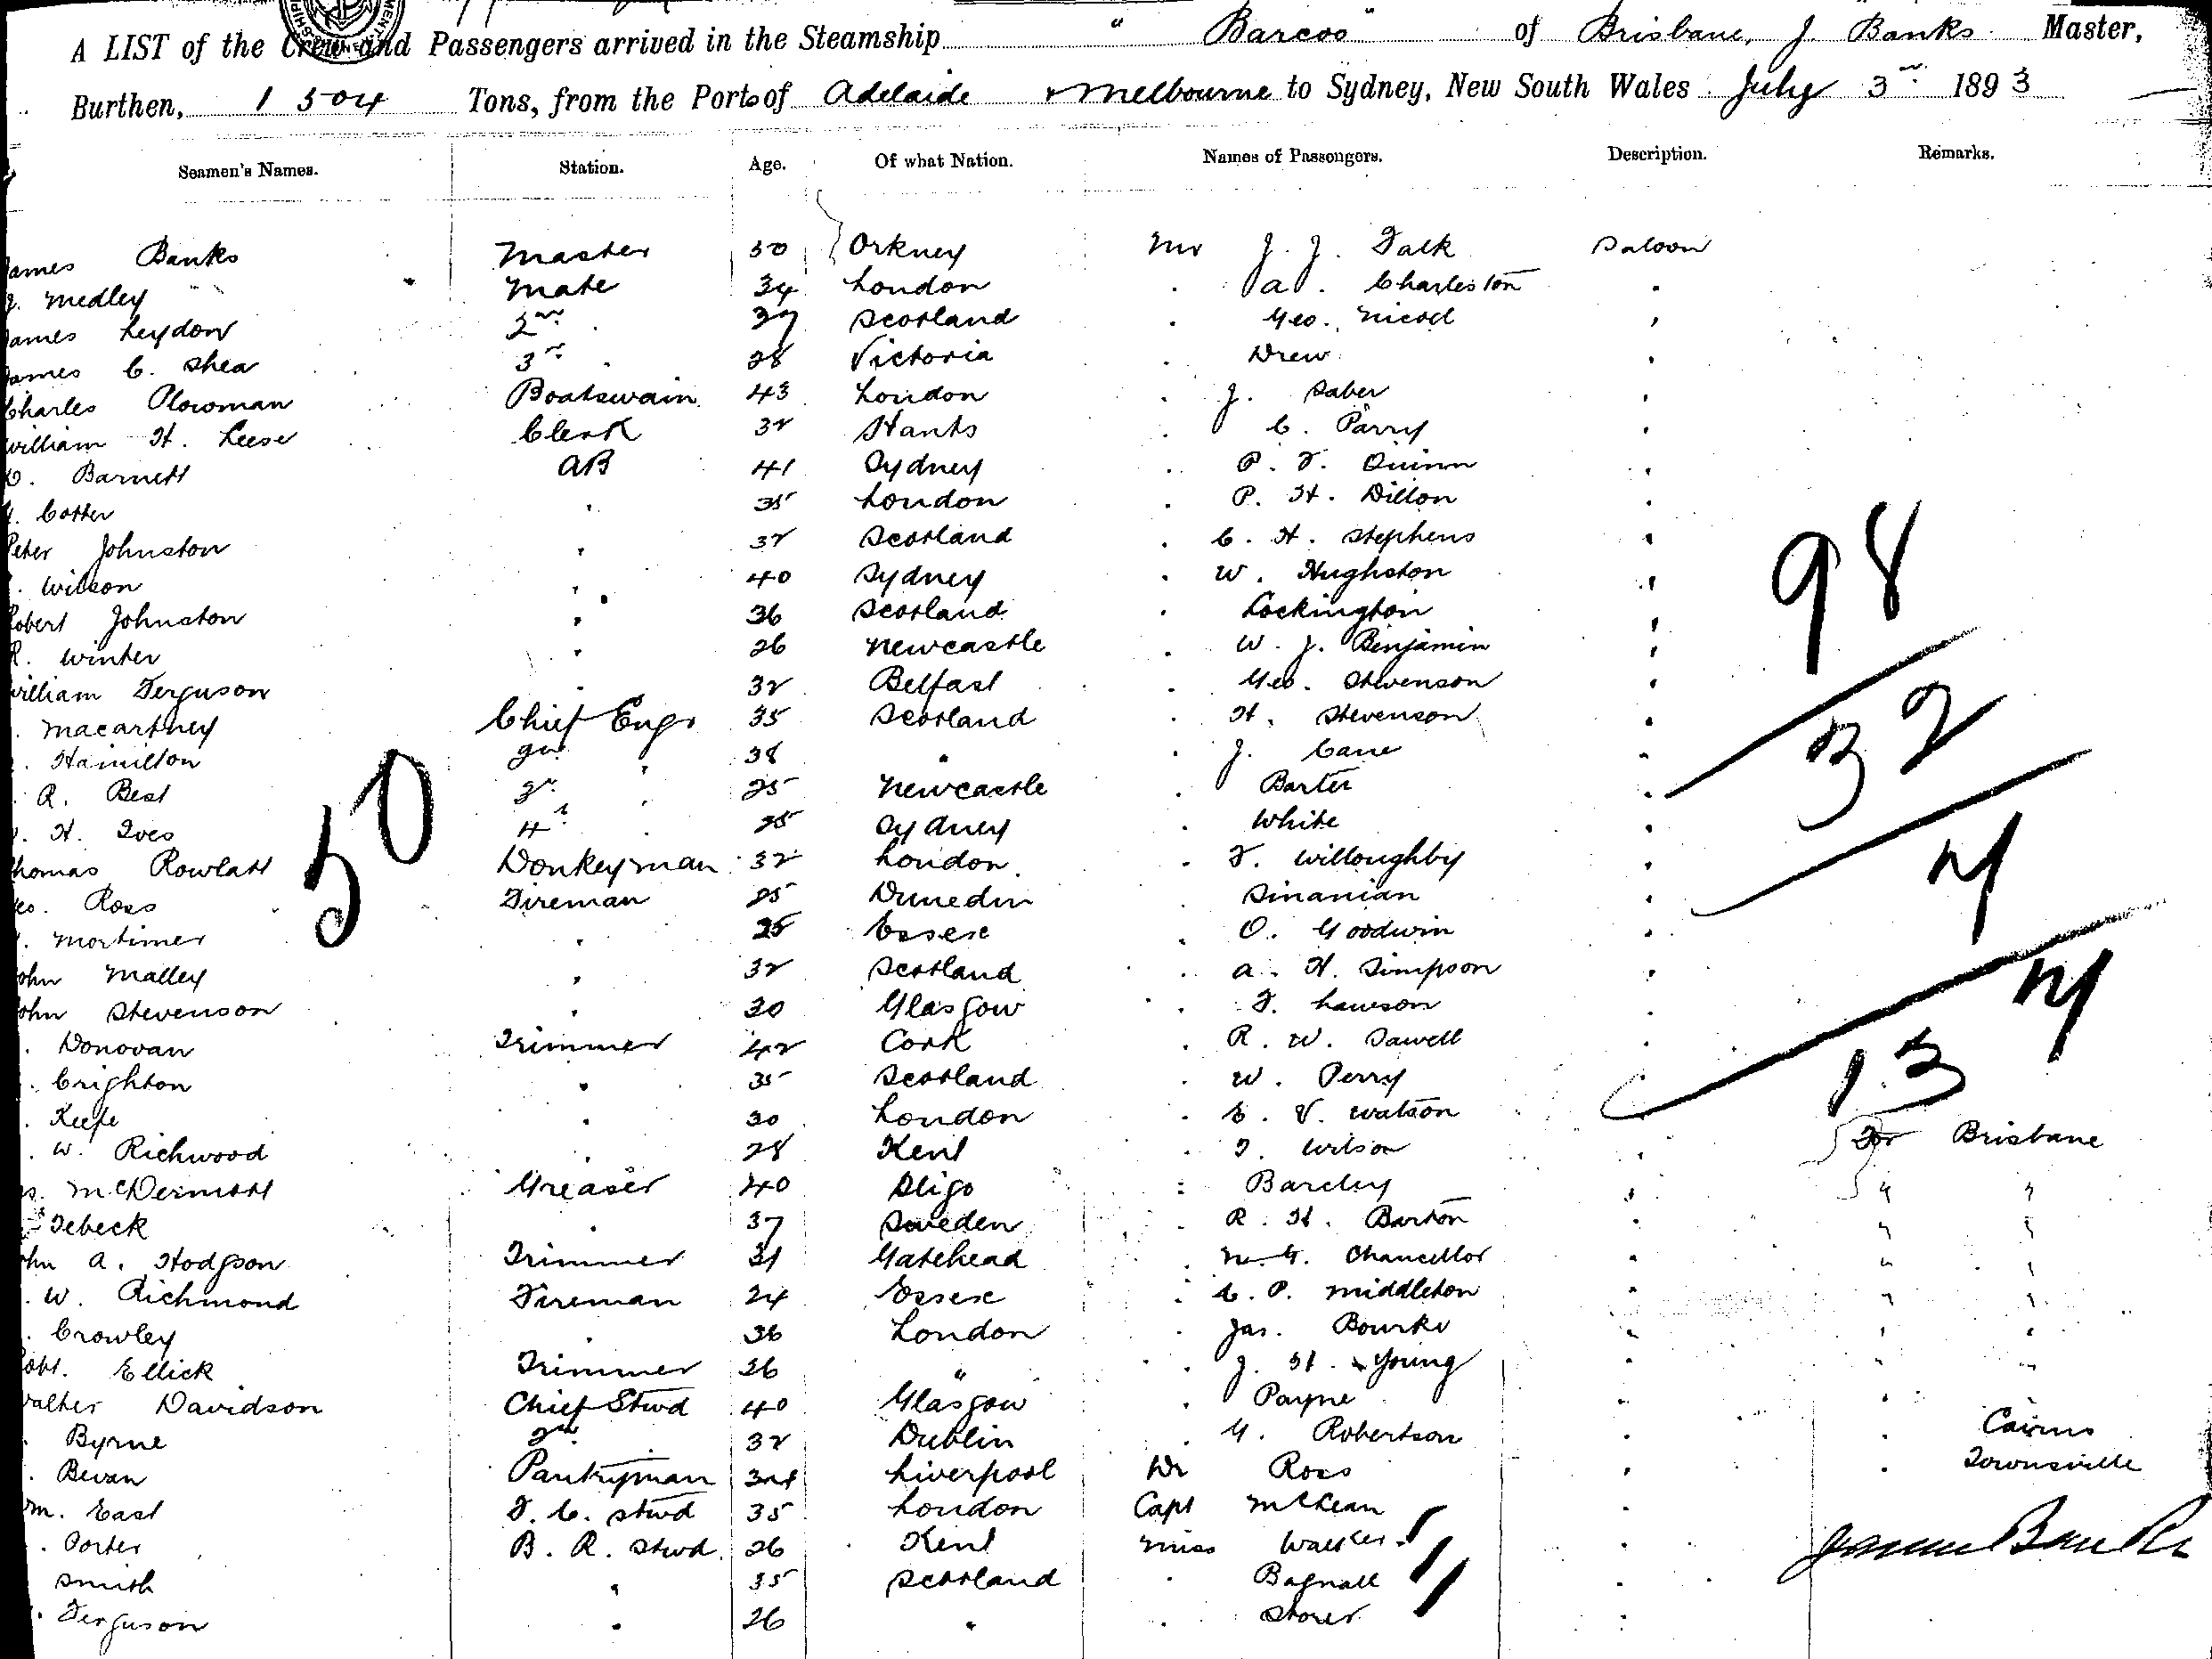 A LIST of the Crew and Passengers arrived in the Steamship " Barcoo " of Brisbane, J. Banks Master,
Burthen, 1504 Tons, from the Ports of Adelaide & Melbourne to Sydney, New South Wales July 3rd 1893
Seamen's Names. Station. Age. Of what Nation. Names of Passengers. Description. Remarks.
ames Banks Master 50 Orkney Mr J. J. Falk Saloon
Medley Mate 34 London " A. Charleston "
ames Leydon 2nd 37 Scotland " Geo. Nicol "
ames C. Shea 3rd " 28 Victoria " Drew "
Charles Plowman Boatswain 43 London " J. Saber "
William H. Leese Clerk 32 Hants " C. Parry "
Barnett AB 41 Sydney " P. F. Quinn "
Cotter " 35 London " P. H. Dillon "
Peter Johnston " 32 Scotland " C. H. Stephens "
Wilson " 40 Sydney " W. Hughston "
Robert Johnston " 36 Scotland " Lockington "
R. Winter " 26 Newcastle " W. J. Benjamin "
William Ferguson " 32 Belfast " Geo. Stevenson "
Macartney Chief Engr 35 Scotland " H. Stevenson "
Hamilton 2nd " 38 " " J. Cane "
R. Best 3rd " 25 Newcastle " Barter "
H. Ives 4th " 25 Sydney " White "
homas Rowlatt Donkeyman 32 London " F. Willoughby "
eo. Ross Fireman 25 Dunedin " Sinanian "
Mortimer " 25 Essex " O. Goodwin "
ohn Malley " 32 Scotland " A. H. Simpson "
ohn Stevenson " 30 Glasgow " F. Lawson "
Donovan Trimmer 42 Cork " R. W. Sawell "
Crighton " 35 Scotland " W. Perry "
Keefe " 30 London " E. V. Watson "
W. Richwood " 28 Kent " T. Wilson " For Brisbane
McDermott Greaser 40 Sligo " Barclay " " "
Tebeck " 37 Sweden " R. H. Barton " " "
hn A. Hodgson Trimmer 31 Gateshead " Chancellor " " "
W. Richmond Fireman 24 Essex " C. P. Middleton " " "
Crowley " 36 London " Jas. Bourke " " "
obt. Ellick Trimmer 26 " " J. H. Young " " "
Walter Davidson Chief Stwd 40 Glasgow " Payne " " "
Byrne 2nd " 32 Dublin " G. Robertson " " Cairns
Bevan Pantryman 34 Liverpool Dr Ross " " Townsville
m. East F. C. Stwd 35 London Capt McLean "
Porter B. R. Stwd 26 Kent Miss Walker "
Smith " 35 Scotland " Bagnall "
Ferguson " 26 " " Storer "
50
98
32
4
4
13
James Banks